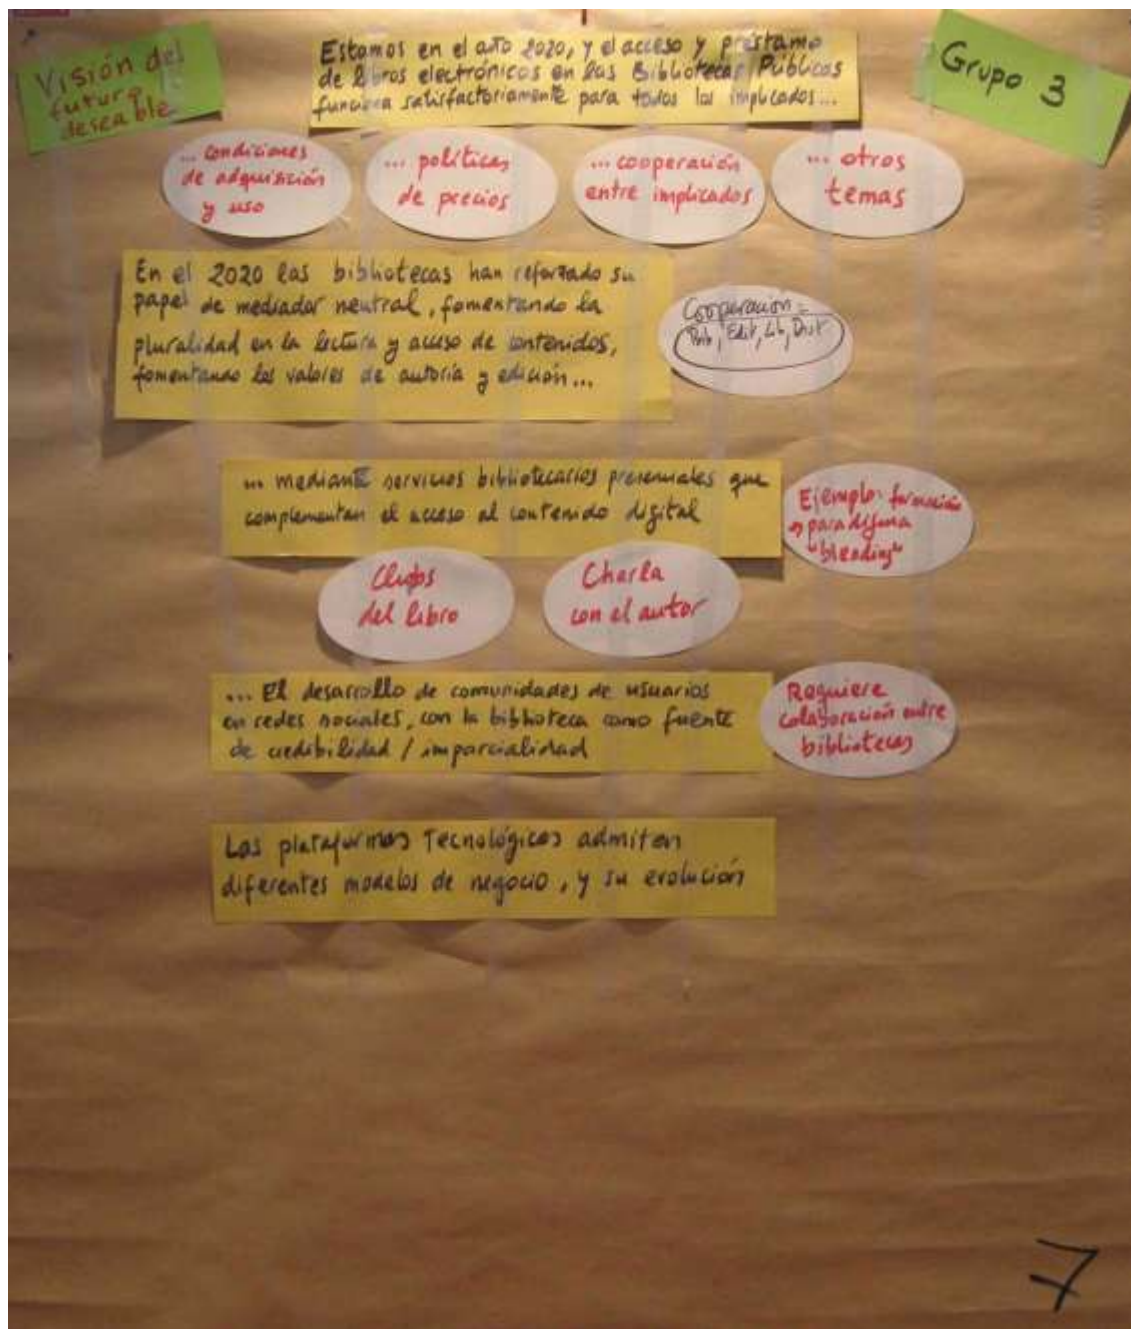 Visión del
futuro
deseable
Estamos en el año 2020, y el acceso y préstamo
de libros electrónicos en las Bibliotecas Públicas
funciona satisfactoriamente para todos los implicados...
Grupo 3
... condiciones
de adquisición
y uso
... políticas
de precios
... cooperación
entre implicados
... otros
temas
En el 2020 las bibliotecas han reforzado su
papel de mediador neutral, fomentando la
pluralidad en la lectura y acceso de contenidos,
fomentando los valores de autoría y edición...
Cooperación =
Edit, Lib, Dist
... mediante servicios bibliotecarios presenciales que
complementan el acceso al contenido digital
Ejemplo: formación
paradigma
"blending"
Clubs
del libro
Charla
con el autor
... El desarrollo de comunidades de usuarios
en redes sociales, con la biblioteca como fuente
de credibilidad / imparcialidad
Requiere
colaboración entre
bibliotecas
Las plataformas Tecnológicas admiten
diferentes modelos de negocio, y su evolución
7